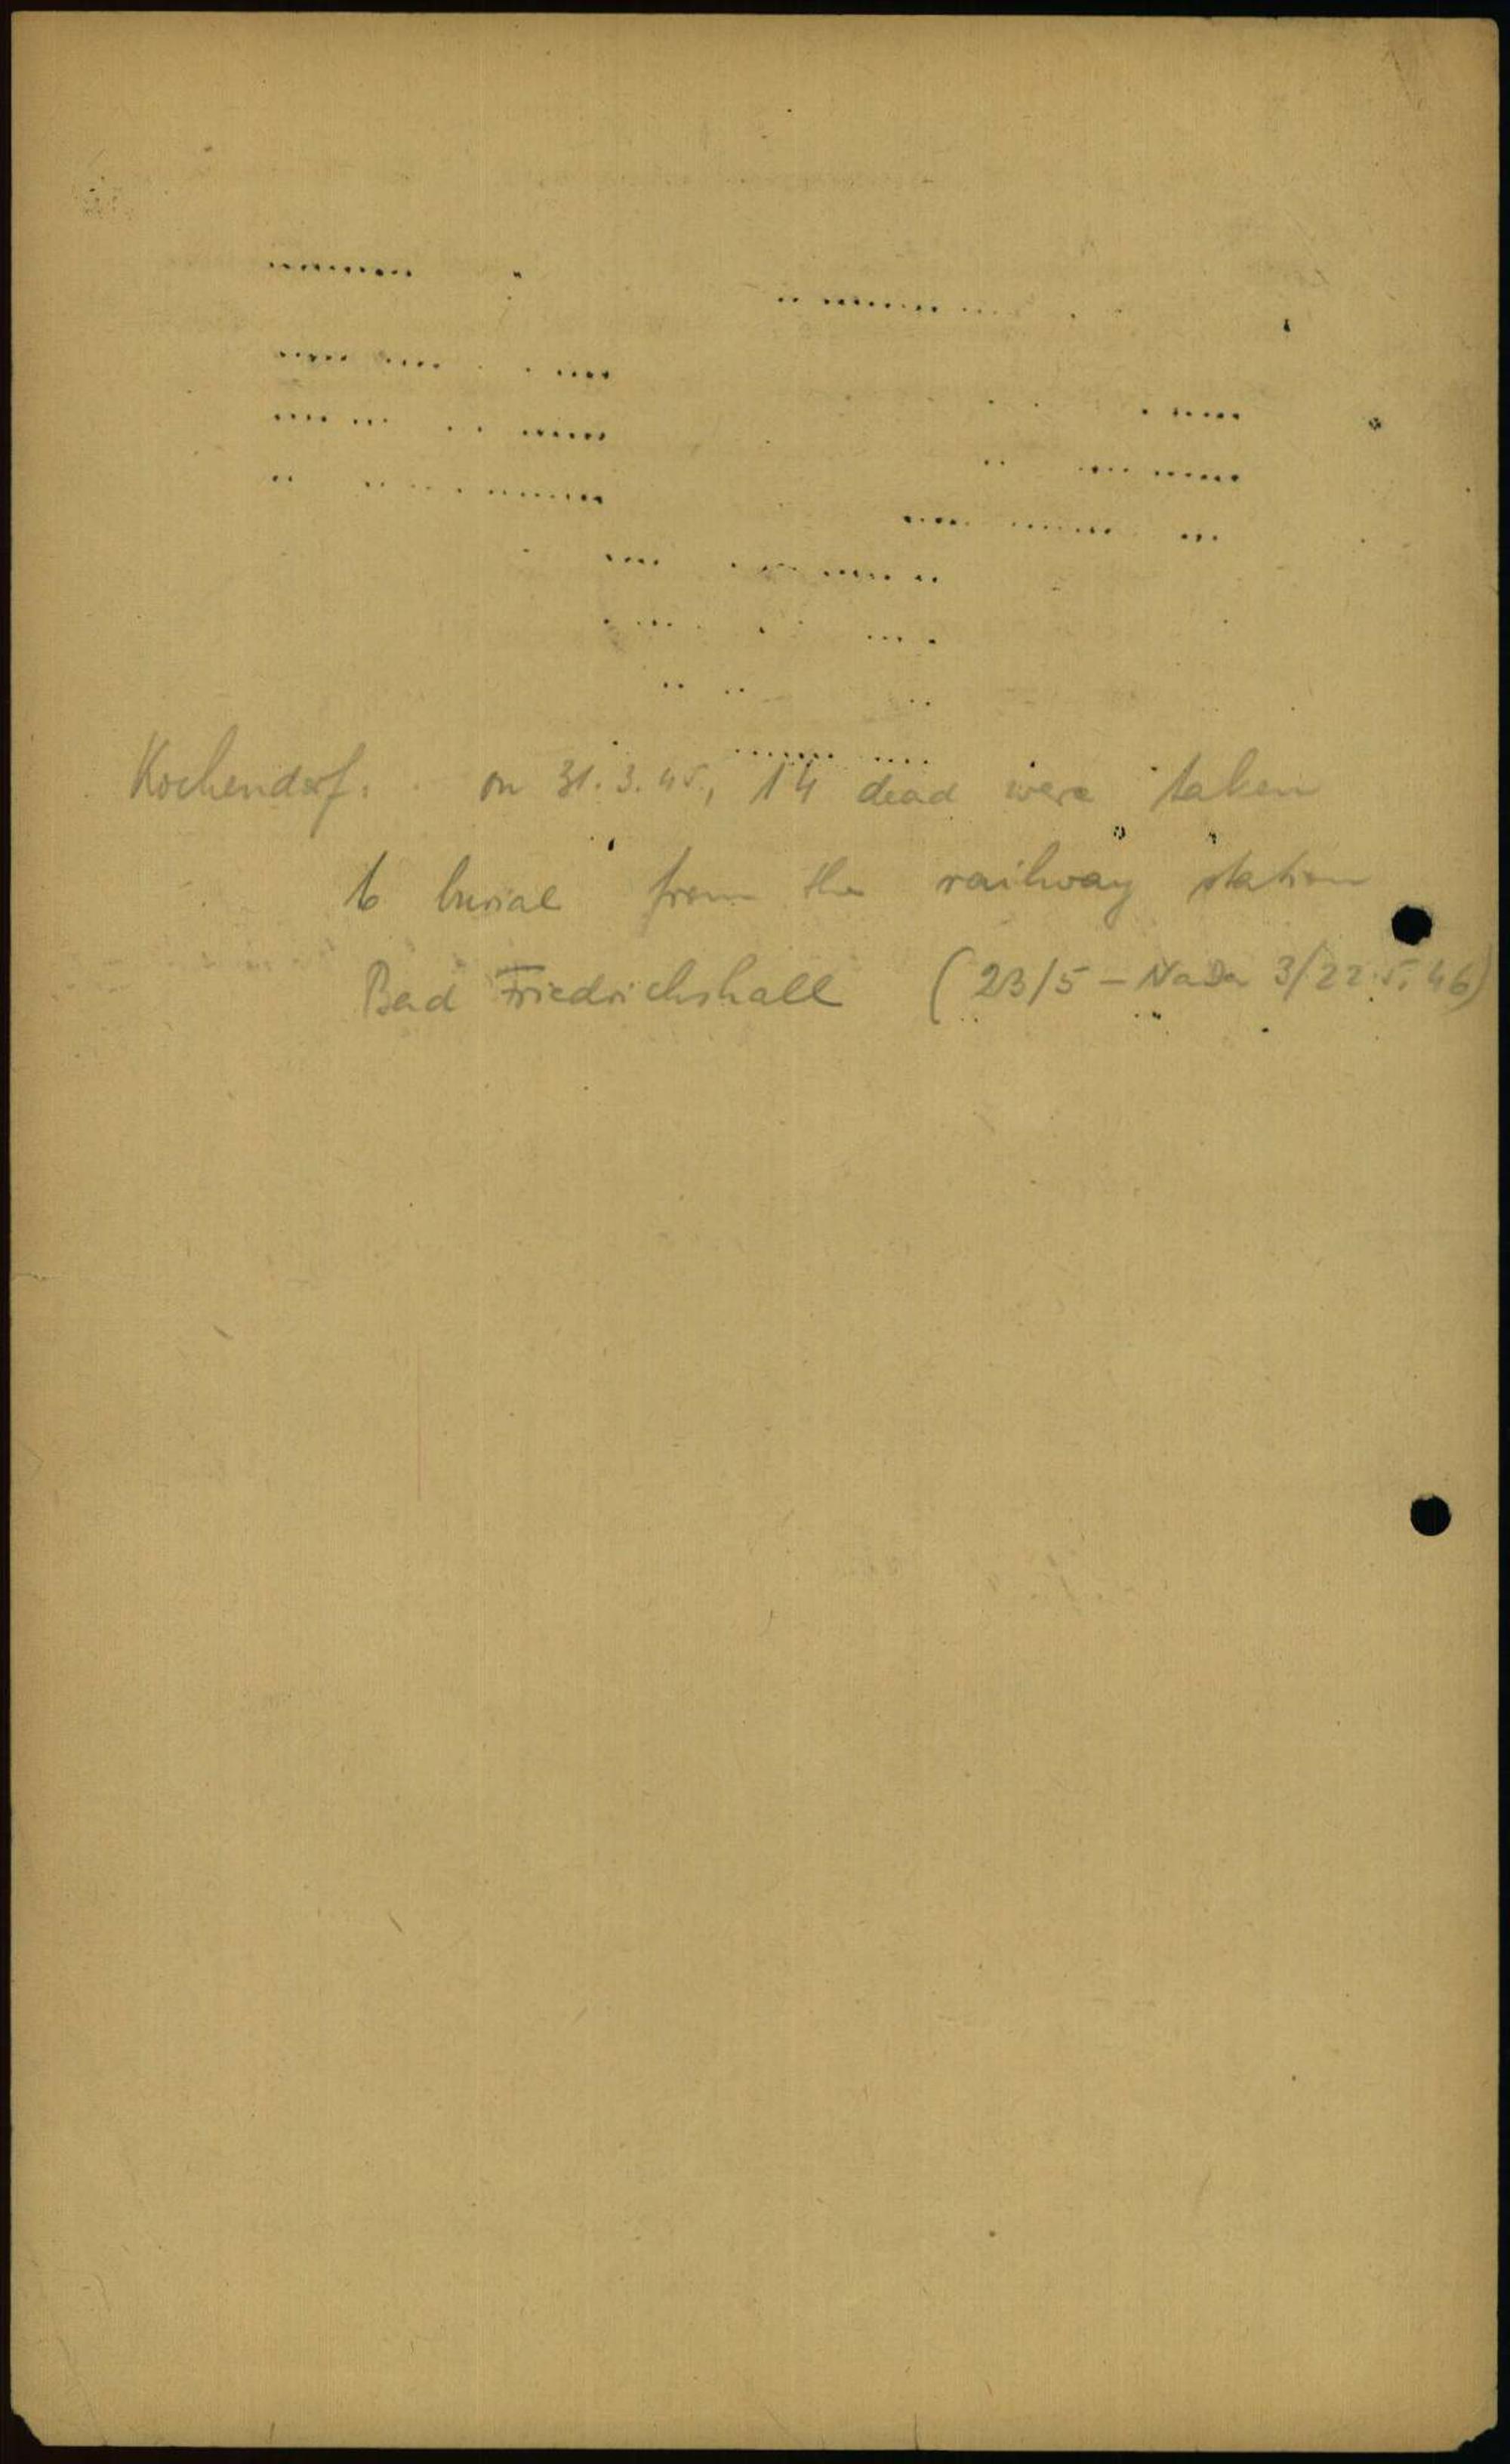 Kochendorf: on 31.3.45, 14 dead were taken
to burial from the railway station
Bad Friedrichshall (23/5 - NaDa 3/22.5.46)